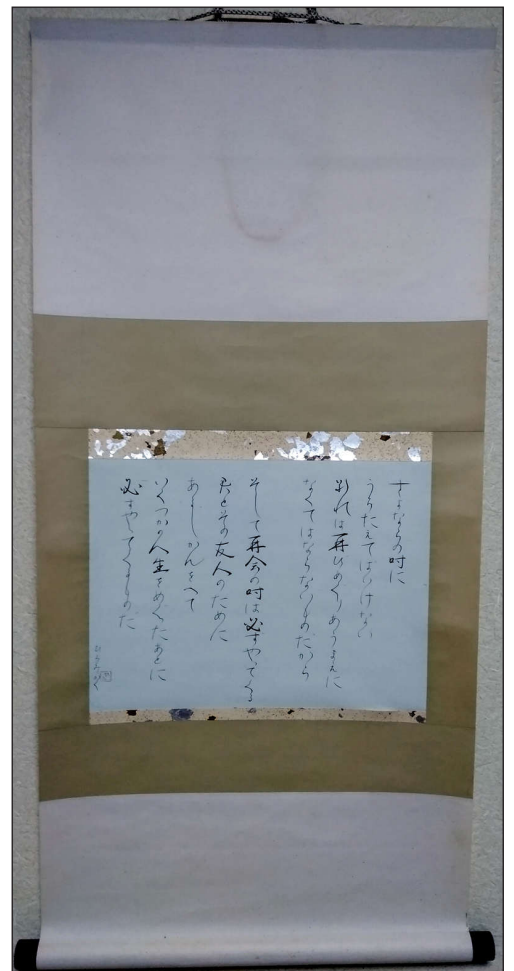 さよならの時に
うろたえてはいけない
別れは再びめぐりあうまえに
なくてはならないものだから
そして再会の時は必ずやってくる
君とその友人のために
あるじかんをへて
いくつかの人生をめぐったあとに
必ずやってくるものだ